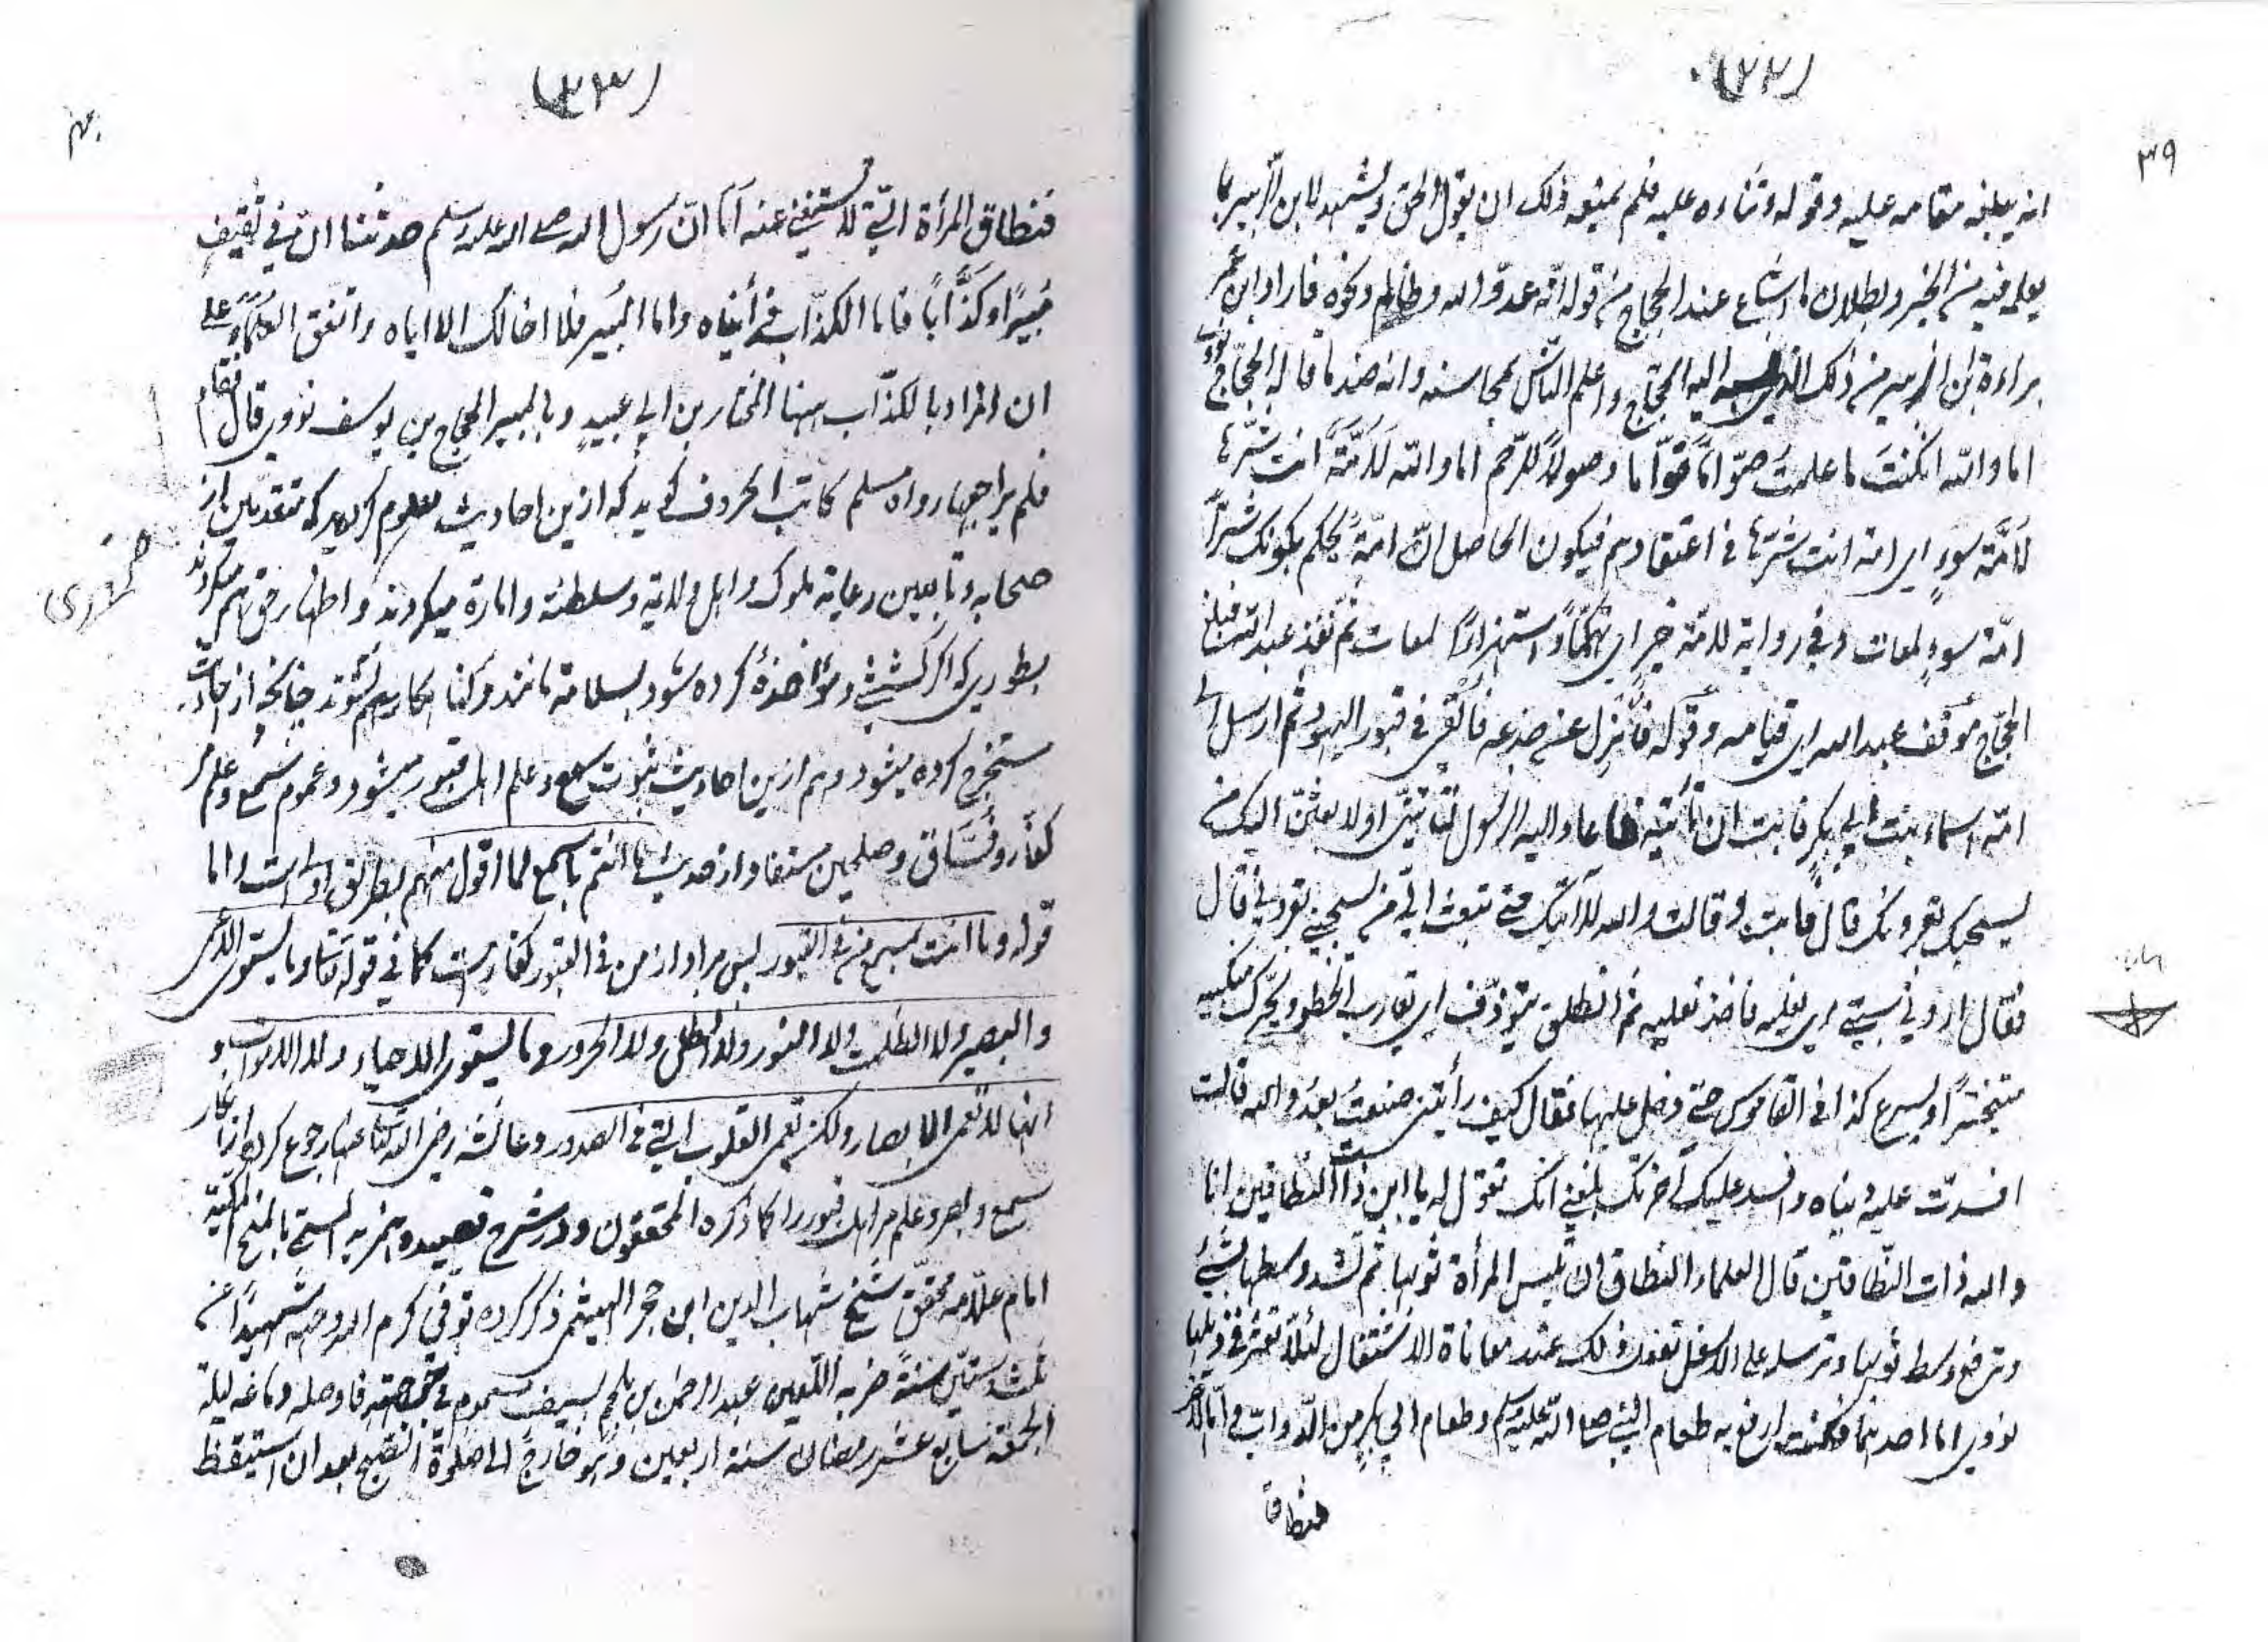 (٣٢)
٣٩
انه يبلغه مقامه عليه وقوله وثناءه عليه فلم يمنعه ذلك ان يقول الحق ويشهد لابن الزبير بما
يعلمه فيه من الخير وبطلان ما اشاع عند الحجاج من قوله انه عدو الله وظالم ونحوه فاراد ابن عمر
براءة ابن الزبير من ذلك الذي نسبه اليه الحجاج واعلم الناس بمحاسنه وانه ضد ما قاله الحجاج نووي
اما والله ان كنت ما علمت صوّاما قوّاما وصولاً للرحم اما والله لَاُمَّةٌ انت شرّها
لَاُمَّةُ سوءٍ اي امة انت شرّها في اعتقادهم فيكون الحاصل انّ امّةً يحكم بكونك شراً
امّة سوءٍ لمعات وفي رواية لامّة خير اي تهكّماً واستهزاءً لمعات ثم نفذ عبد الله فبلغ
الحجّاج موقف عبد الله اي قيامه وقوله فاُنزِل عن جذعه فاُلقي في قبور اليهود ثم ارسل الى
امّه اسماء بنت ابي بكر فابت ان تأتيه فاعاد اليه الرسول لتأتينّي او لابعثنّ اليك من
يسحبك بقرونك قال فابت وقالت والله لا آتيك حتى تبعث اليّ من يسحبني بقروني قال
فقال اروني سبتيّ اي نعليه فاخذ نعليه ثم انطلق يتوذّف اي يقارب الخطو ويحرّك منكبيه
متبختراً او يسرع كذا في القاموس حتى دخل عليها فقال كيف رأيتني صنعت بعدو الله قالت
افسدت عليه دنياه وافسد عليك آخرتك بلغني انك تقول له يا ابن ذات النطاقين انا
والله ذات النطاقين قال العلماء النطاق ان تلبس المرأة ثوبها ثم تشد وسطها بشئ
وترفع وسط ثوبها وترسله على الاسفل تفعل ذلك عند معاناة الاشتغال لئلا تعثر في ذيلها
نووي اما احدهما فكنت ارفع به طعام النبي صلى الله عليه وسلم وطعام ابي بكر من الدواب واما الآخر
فنطاق
(٣٣)
فنطاق المرأة التي لا تستغني عنه اَمَا انّ رسول الله صلى الله عليه وسلم حدثنا انّ في ثقيف
مُبيراً وكَذَّاباً فاما الكذّاب فرأيناه واما المُبير فلا اخالك الا اياه واتفق العلماء على
ان المراد بالكذّاب ههنا المختار بن ابي عبيد وبالمبير الحجاج بن يوسف نووي قال فقام
فلم يراجعها رواه مسلم كاتب الحروف گويد كه ازين احاديث معلوم گرديد كه متقدمين از
صحابه وتابعين رعاية ملوك واهل ولاية وسلطنة وامارة ميكردند واظهار حق هم ميكردند
بطوري كه اگر كشتني ومؤاخذه كرده شود بسلامة مانند وگناهگار هم نشوند چنانچه از احاديث
مستخرج كرده ميشود وهم ازين احاديث ثبوت سمع وعلم اهل قبور ميشود وعموم سمع وعلم مر
كفّار وفسّاق وصلحين مستفاد از حديث ما انتم باسمع لما اقول منهم بطريق اولى است واما
قوله وما انت بمسمع من في القبور پس مراد از من في القبور كفار است كما في قوله تعالى وما يستوى الاعمى
والبصير ولا الظلمت ولا النور ولا الظل ولا الحرور وما يستوى الاحياء ولا الاموات و
انها لا تعمى الابصار ولكن تعمى القلوب التي في الصدور وعائشة رضي الله تعالى عنها رجوع كرده از انكار
سمع وبصر وعلم مر اهل قبور را كما ذكره المحققون ودر شرح قصيده همزيه المسمّى بالمنح المكيّة
امام علامه محقق شيخ شهاب الدين ابن حجر الهيثمي ذكر كرده توفي كرم الله وجهه شهيداً عن
ثلث وستين سنةً ضربه اللعين عبد الرحمن بن ملجم بسيف مسموم في جبهته فاوصله دماغه ليلة
الجمعة سابع عشر رمضان سنة اربعين وهو خارج الى صلوة الصبح بعد ان استيقظ
ضروری